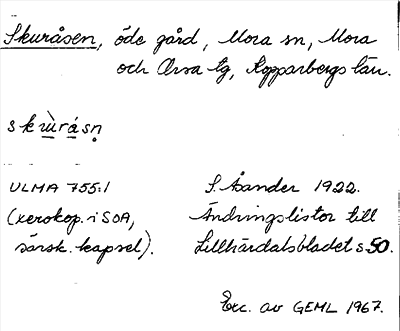 Skuråsen, öde gård, Mora sn, Mora
och Orsa tg, Kopparbergs län.
skùrásṇ
ULMA 755:1
S. Åander 1922.
(xerokop. i SOA,
Ändringslistor till
särsk. kapsel).
Lillhärdalsbladet s. 50.
Exc. av GEML 1967.